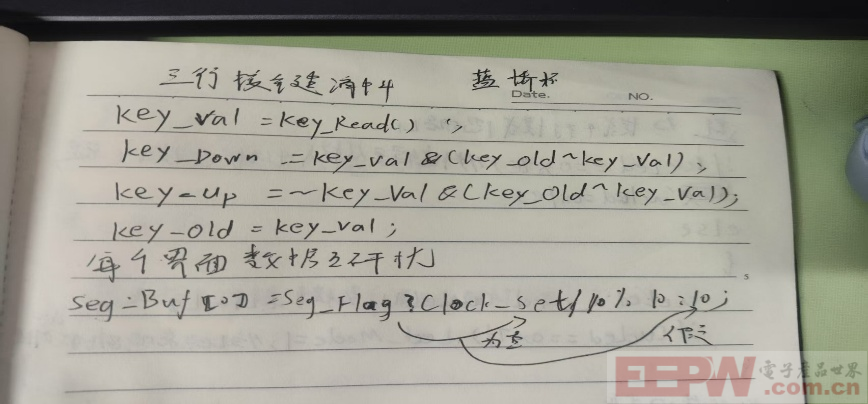 三行按键消抖 蓝桥杯
Date. NO.
key_val = key_Read();
key_Down = key_val & (key_old ^ key_val);
key_up = ~key_val & (key_old ^ key_val);
key_old = key_val;
每个界面数据互不干扰
Seg_Buf[0] = Seg_Flag ? Clock_Set/10%10:10;
为真
EEPW 電子產品世界
.com.cn